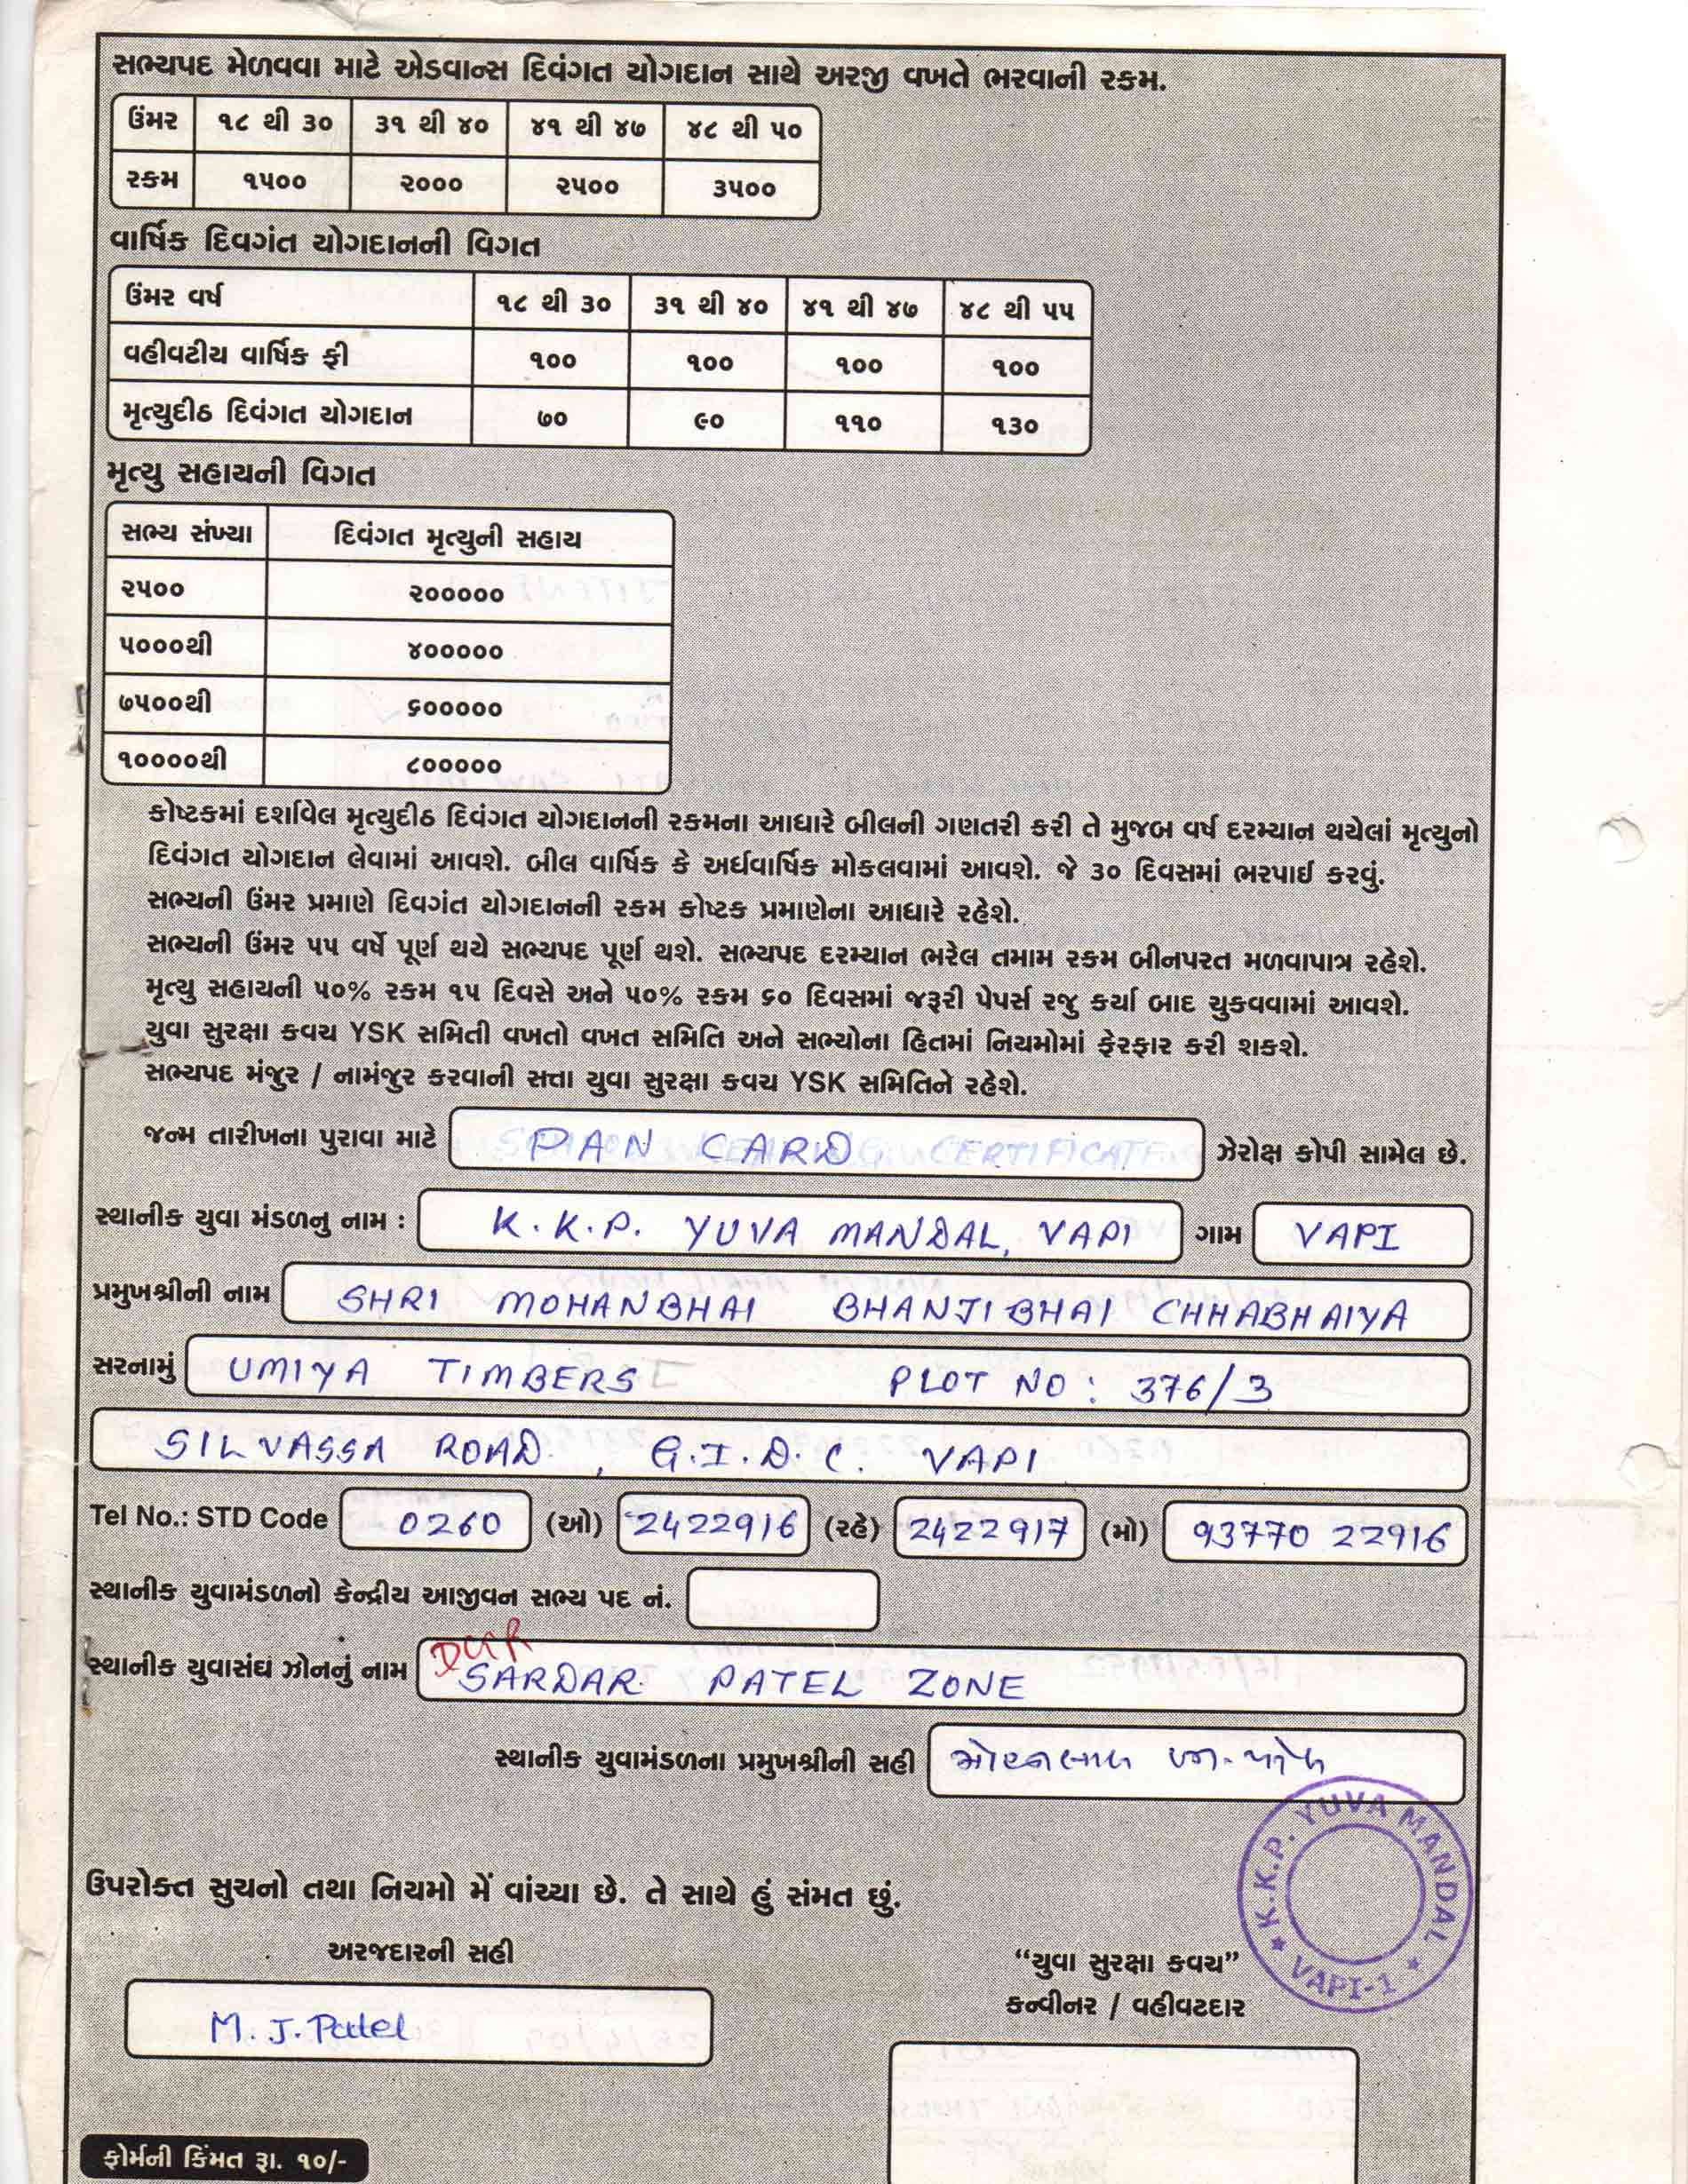 સભ્યપદ મેળવવા માટે એડવાન્સ દિવંગત યોગદાન સાથે અરજી વખતે ભરવાની રકમ.
ઉંમર ૧૮ થી ૩૦ ૩૧ થી ૪૦ ૪૧ થી ૪૭ ૪૮ થી ૫૦
રકમ ૧૫૦૦ ૨૦૦૦ ૨૫૦૦ ૩૫૦૦
વાર્ષિક દિવગંત યોગદાનની વિગત
ઉંમર વર્ષ ૧૮ થી ૩૦ ૩૧ થી ૪૦ ૪૧ થી ૪૭ ૪૮ થી ૫૫
વહીવટીય વાર્ષિક ફી ૧૦૦ ૧૦૦ ૧૦૦ ૧૦૦
મૃત્યુદીઠ દિવંગત યોગદાન ૭૦ ૯૦ ૧૧૦ ૧૩૦
મૃત્યુ સહાયની વિગત
સભ્ય સંખ્યા દિવંગત મૃત્યુની સહાય
૨૫૦૦ ૨૦૦૦૦૦
૫૦૦૦થી ૪૦૦૦૦૦
૭૫૦૦થી ૬૦૦૦૦૦
૧૦૦૦૦થી ૮૦૦૦૦૦
કોષ્ટકમાં દર્શાવેલ મૃત્યુદીઠ દિવંગત યોગદાનની રકમના આધારે બીલની ગણતરી કરી તે મુજબ વર્ષ દરમ્યાન થયેલાં મૃત્યુનો
દિવંગત યોગદાન લેવામાં આવશે. બીલ વાર્ષિક કે અર્ધવાર્ષિક મોકલવામાં આવશે. જે ૩૦ દિવસમાં ભરપાઈ કરવું.
સભ્યની ઉંમર પ્રમાણે દિવગંત યોગદાનની રકમ કોષ્ટક પ્રમાણેના આધારે રહેશે.
સભ્યની ઉંમર ૫૫ વર્ષે પૂર્ણ થયે સભ્યપદ પૂર્ણ થશે. સભ્યપદ દરમ્યાન ભરેલ તમામ રકમ બીનપરત મળવાપાત્ર રહેશે.
મૃત્યુ સહાયની ૫૦% રકમ ૧૫ દિવસે અને ૫૦% રકમ ૬૦ દિવસમાં જરૂરી પેપર્સ રજુ કર્યા બાદ ચુકવવામાં આવશે.
યુવા સુરક્ષા કવચ YSK સમિતી વખતો વખત સમિતિ અને સભ્યોના હિતમાં નિયમોમાં ફેરફાર કરી શકશે.
સભ્યપદ મંજુર / નામંજુર કરવાની સત્તા યુવા સુરક્ષા કવચ YSK સમિતિને રહેશે.
જન્મ તારીખના પુરાવા માટે PAN CARD CERTIFICATE ઝેરોક્ષ કોપી સામેલ છે.
સ્થાનીક યુવા મંડળનુ નામ : K.K.P. YUVA MANDAL, VAPI ગામ VAPI
પ્રમુખશ્રીની નામ SHRI MOHANBHAI BHANJIBHAI CHHABHAIYA
સરનામું UMIYA TIMBERS PLOT NO : 376/3
SILVASSA ROAD, G.I.D.C. VAPI
Tel No.: STD Code 0260 (ઓ) 2422916 (રહે) 2422917 (મો) 93770 22916
સ્થાનીક યુવામંડળનો કેન્દ્રીય આજીવન સભ્ય પદ નં.
સ્થાનીક યુવાસંઘ ઝોનનું નામ SARDAR PATEL ZONE
સ્થાનીક યુવામંડળના પ્રમુખશ્રીની સહી
K.K.P. YUVA MANDAL
VAPI-1
ઉપરોક્ત સુચનો તથા નિયમો મેં વાંચ્યા છે. તે સાથે હું સંમત છું.
અરજદારની સહી
"યુવા સુરક્ષા કવચ"
કન્વીનર / વહીવટદાર
M. J. Patel
ફોર્મની કિંમત રૂા. ૧૦/-